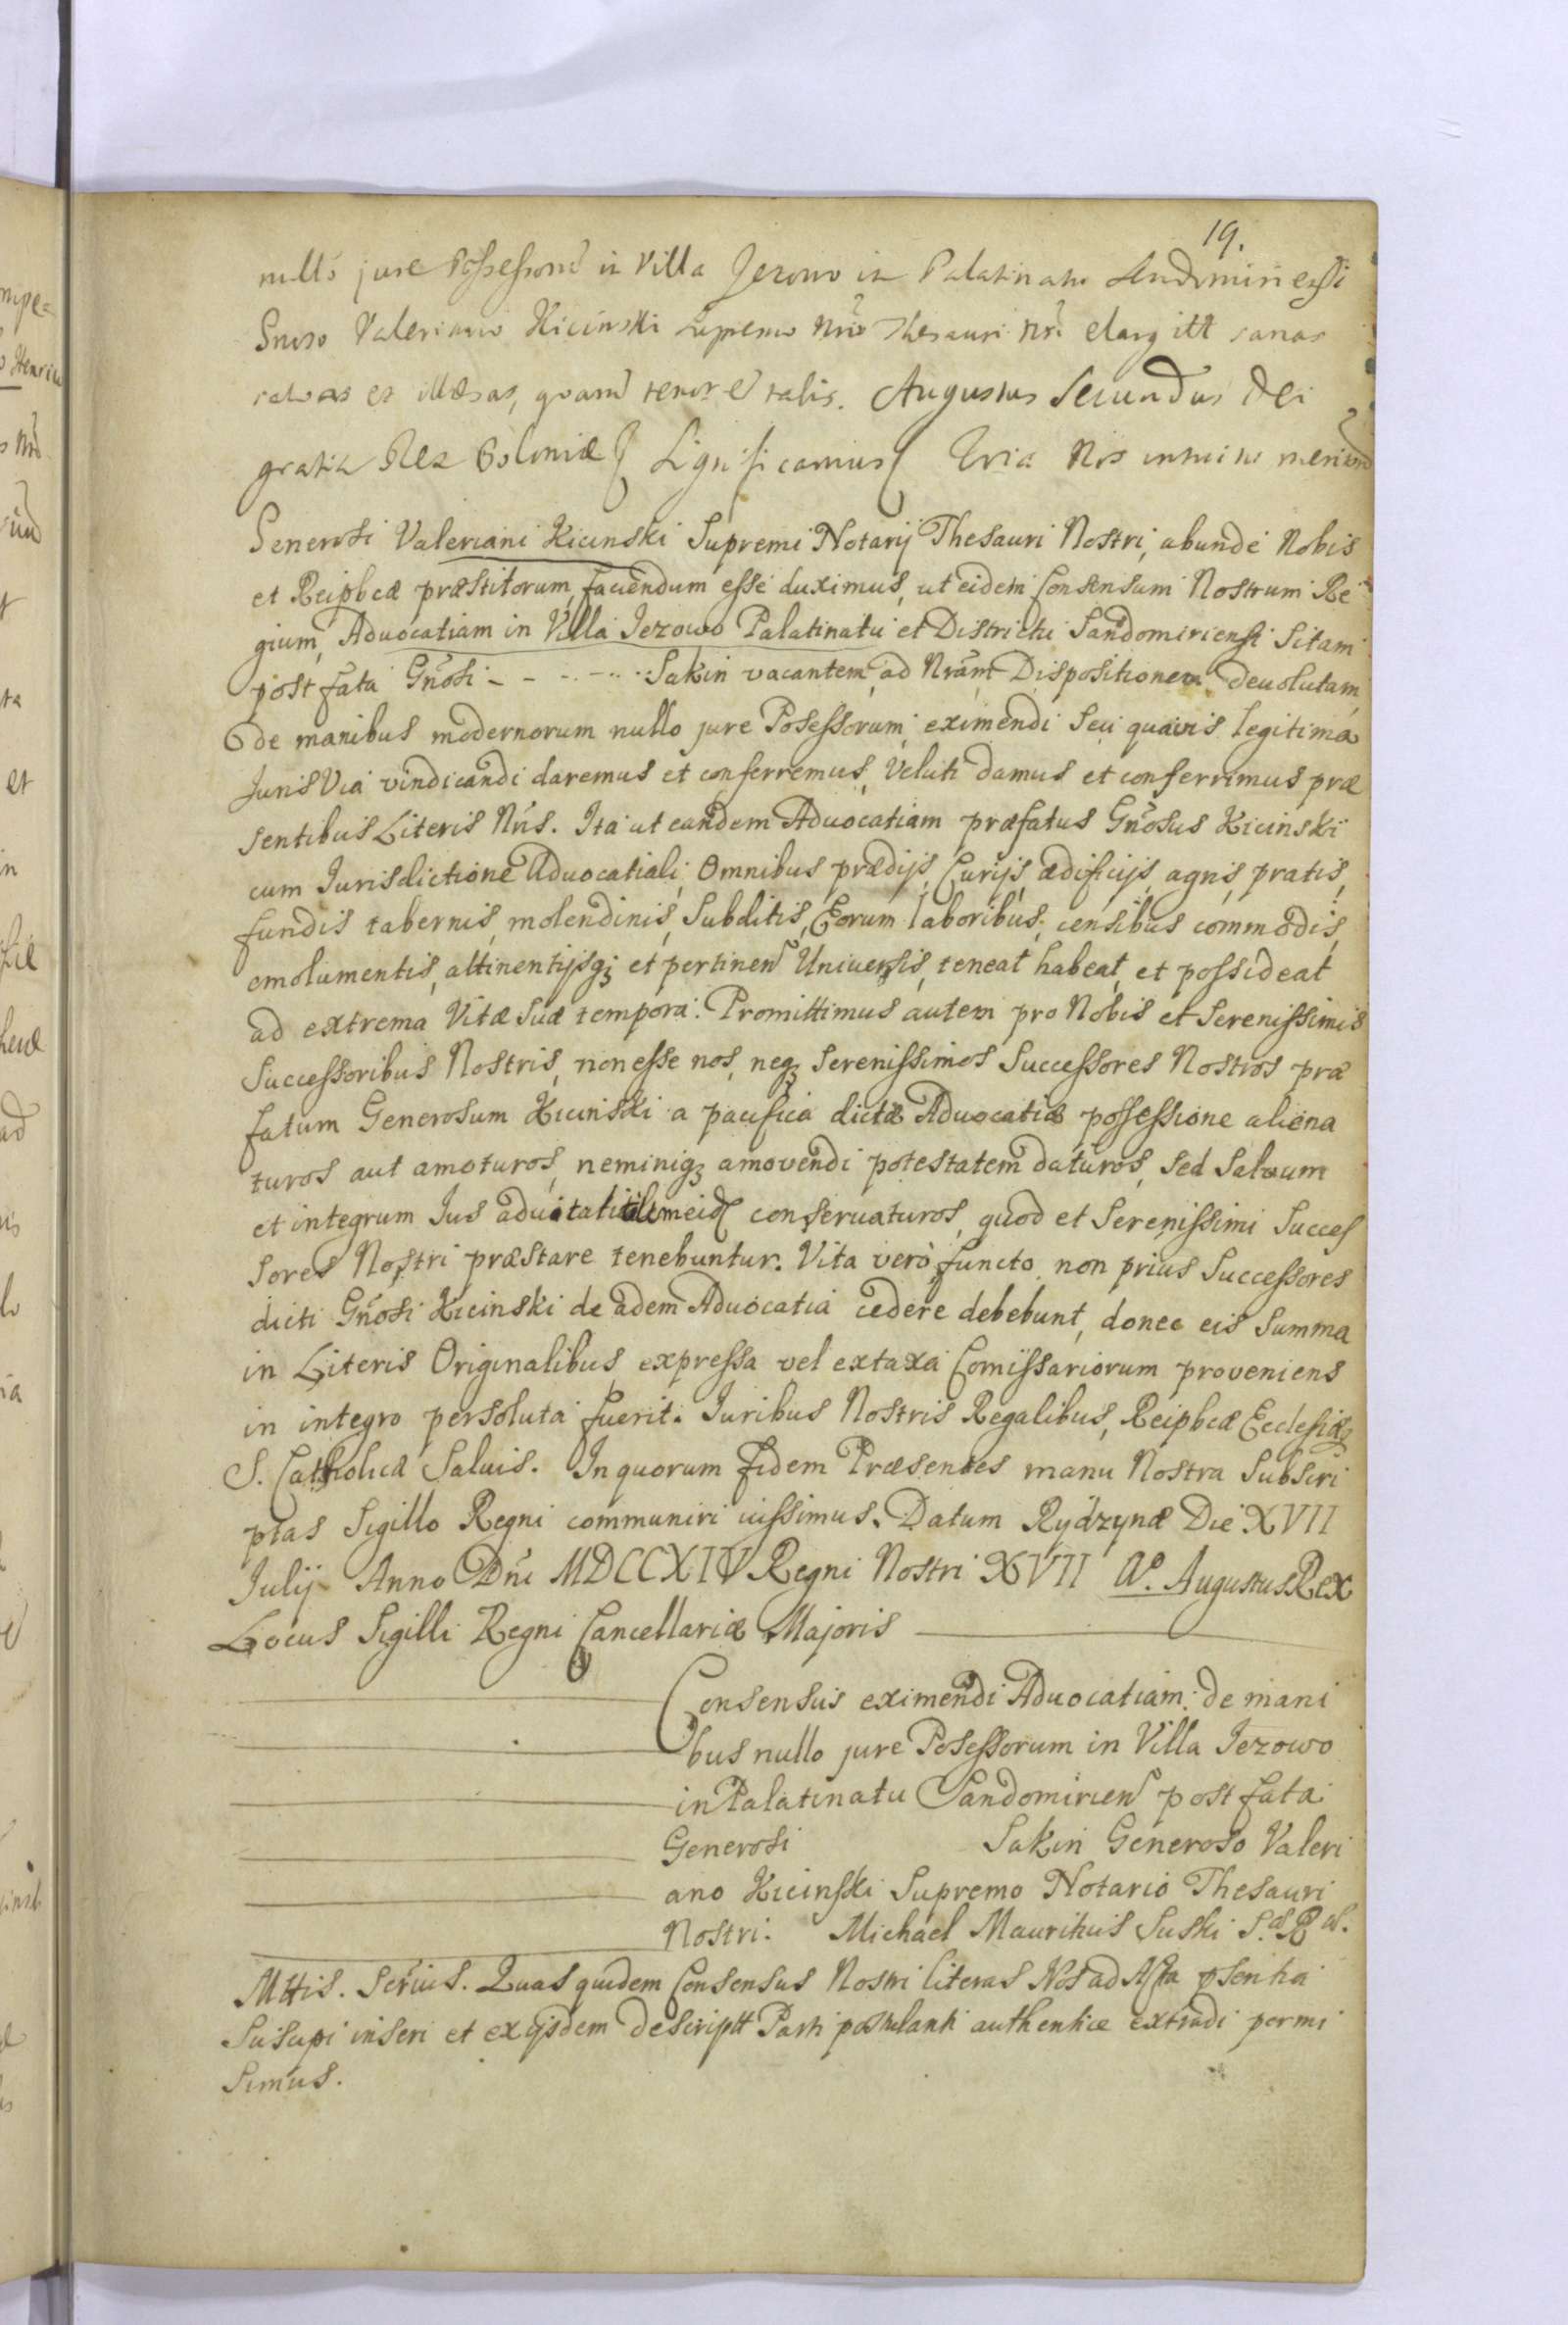 19.
nullo jure Possessorũ in Villa Jezowo in Palatinatu Sendomiriensi
Gnroso Valeriano Kicinski Supremo Nrio Thesauri Nri elargitt sanas
salvas et illæsas, quarũ tenor eŝt talis. Augustus Secundus Dei
gratia Rex Poloniæ Significamus Quia Nos intuitu meritorũ
Generosi Valeriani Kicinski Supremi Notarij Thesauri Nostri, abundè Nobis
et Reipbcæ præstitorum, faciendum esse duximus, ut eidem Consensum Nostrum Re
gium, Advocatiam in Villa Jezowo Palatinatu et Districtu Sandomiriensi Sitam
post fata Gnosi - - - - - - Sakin vacantem, ad Nram Dispositionem devolutam,
de manibus modernorum nullo jure Posessorum, eximendi seu quavis legitima
Juris Via vindicandi daremus et conferremus, Veluti damus et conferrimus præ
sentibus Literis Nris. Ita ut eandem Advocatiam præfatus Gnosus Kicinski
cum Jurisdictione Advocatiali, Omnibus prædijs, Curijs, ædificijs, agris, pratis,
fundis tabernis, molendinis, Subditis, Eorum laboribus, censibus commodis,
emolumentis, attinentijsq; et pertinen Universis, teneat habeat, et possideat
ad extrema Vitæ suæ tempora. Promittimus autem pro Nobis et Serenissimis
Successoribus Nostris, non esse nos, neq; Serenissimos Successores Nostros præ
fatum Generosum Kicinski a pacifica dictæ Advocatiæ possessione aliena
turos aut amoturos, neminiq; amovendi potestatem daturos, sed Salvum
et integrum Jus advocatialem eid conservaturos, quod et Serenissimi Succes
sores Nostri præstare tenebuntur. Vita verò functo, non prius Successores
dicti Gnosi Kicinski de adem Advocatia cedere debebunt, donec eis Summa
in Literis Originalibus expressa vel extaxa Comissariorum proveniens
in integro persoluta fuerit. Juribus Nostris Regalibus, Reipbcæ Ecclesiæq;
S. Catholicæ Salvis. In quorum fidem Præsentes manu Nostra Subscri
ptas Sigillo Regni communiri iussimus. Datum Rydzynæ Die XVII
Julij Anno Dni MDCCXIV Regni Nostri XVII Ao. Augustus Rex
Locus Sigilli Regni Cancellariæ Majoris
Consensus eximendi Advocatiam de mani
bus nullo jure Posessorum in Villa Jezowo
in Palatinatu Sandomirien post fata
Generosi Sakin Generoso Valeri
ano Kicinski Supremo Notario Thesauri
Nostri. Michael Mauritius Suski S. R
Mttis. Sertius. Quas quidem Consensus Nostri literas Nos ad Acta psentia
Suscipi inseri et exijsdem descriptt Parti postulanti authentice extradi permi
Simus.